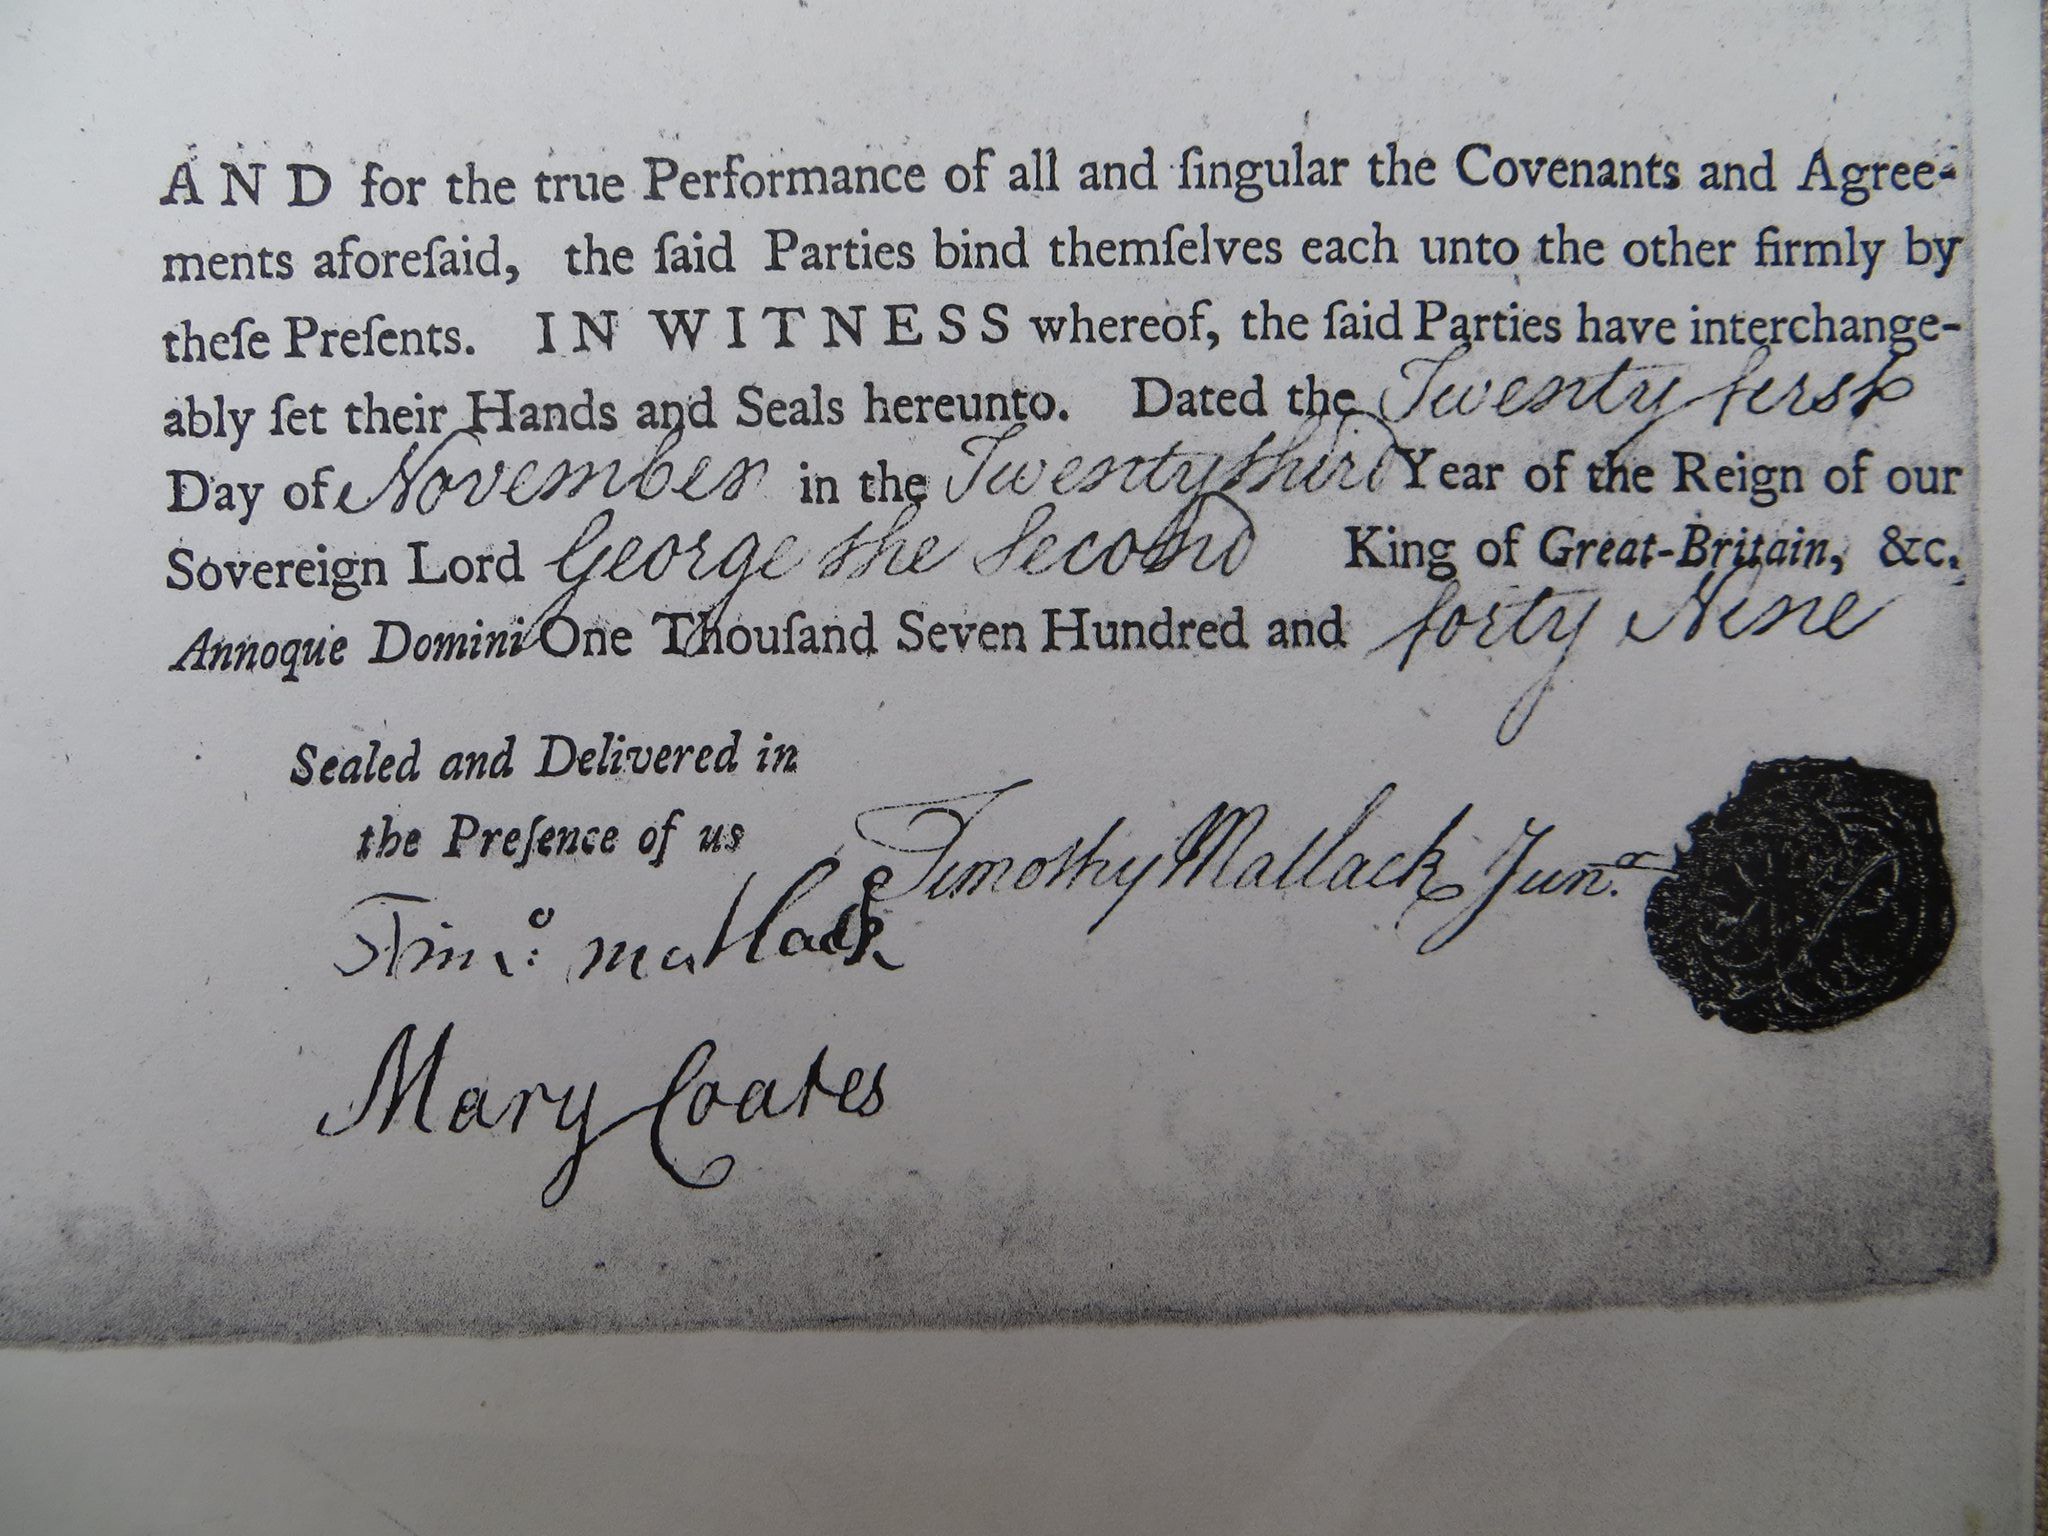 AND for the true Performance of all and ſingular the Covenants and Agree-
ments aforeſaid, the ſaid Parties bind themſelves each unto the other firmly by
theſe Preſents. IN WITNESS whereof, the ſaid Parties have interchange-
ably ſet their Hands and Seals hereunto. Dated the Twenty first
Day of November in the Twenty third Year of the Reign of our
Sovereign Lord George the Second King of Great-Britain, &c.
Annoque Domini One Thouſand Seven Hundred and forty Nine
Sealed and Delivered in
the Preſence of us
Timothy Matlack Junr.
Timo: matlack
Mary Coates